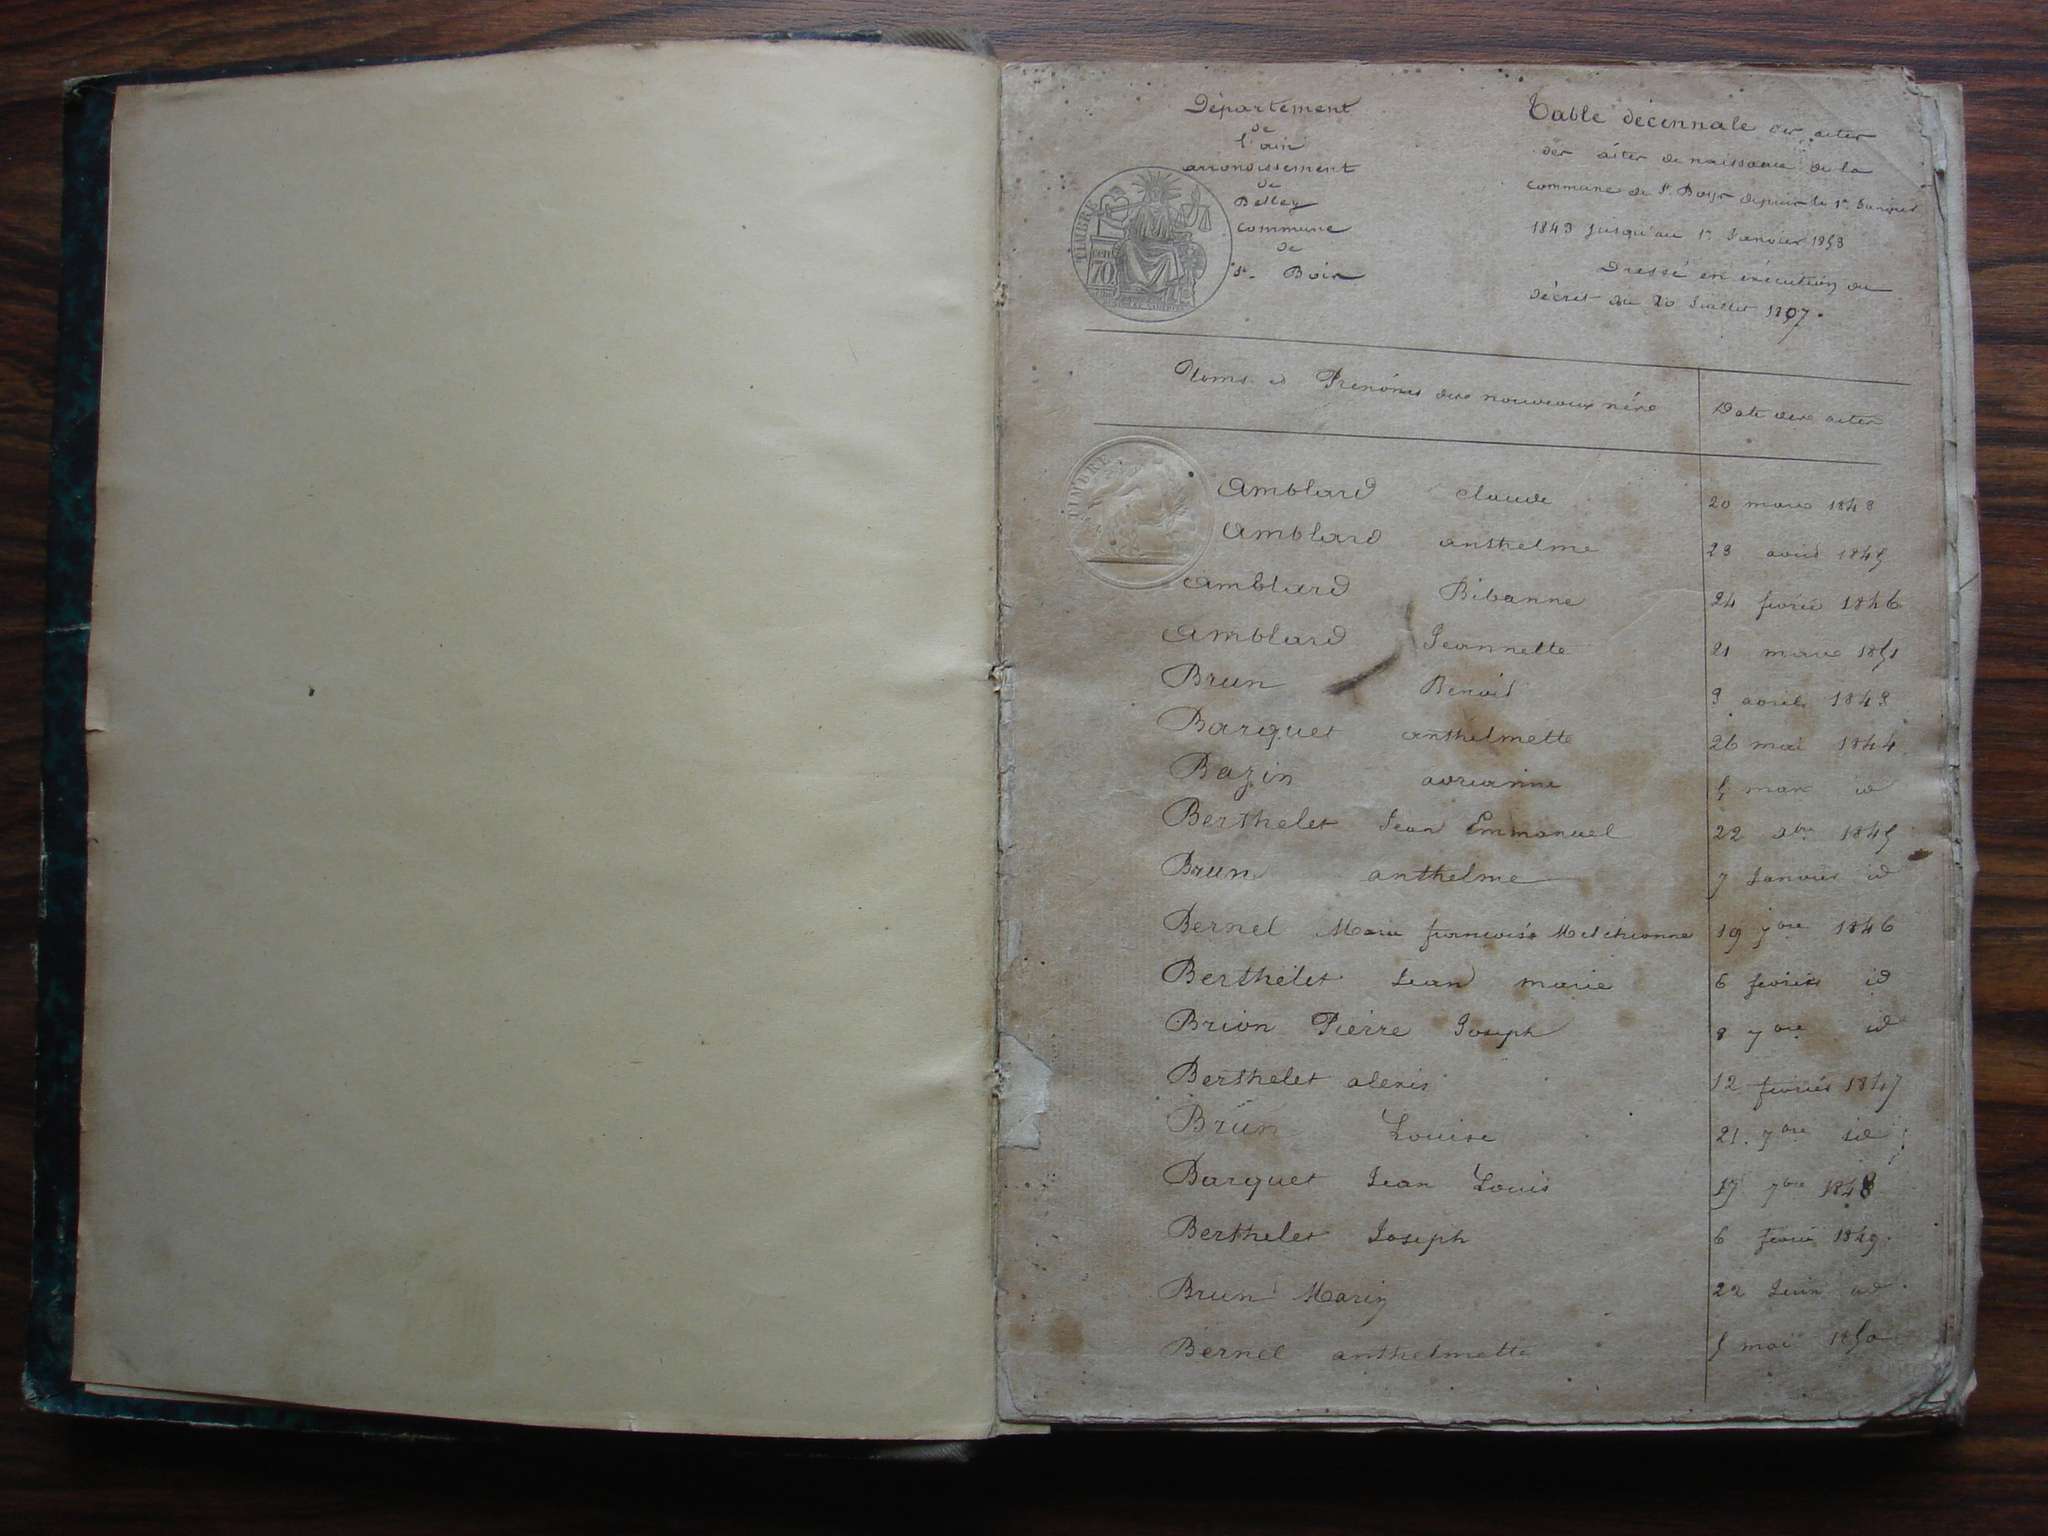 Département
de
l'ain
arrondissement
de
Belley
commune
de
St. Bois
TIMBRE
70
Table décennale des actes
des actes de naissance de la
commune de St. Boys depuis le 1er Janvier
1843 jusqu'au 1er Janvier 1853
Dressé en exécution du
décret du 20 Juillet 1807.
Noms et Prenóms des nouveaux nérs
Date des actes
TIMBRE
Amblard claude 20 mars 1843
Amblard anthelme 23 avril 1845
Amblard Bibanne 24 fevrier 1846
Amblard Jeannette 21 mars 1851
Brun Benoit 9 avril 1843
Barquet anthelmette 26 mai 1844
Bazin adrianne 5 mars id
Berthelet Jean Emmanuel 22 xbre 1845
Brun anthelme 7 Janvier id
Bernel Marie francoise Melchionne 19 7bre 1846
Berthelet Jean marie 6 fevrier id
Brion Pierre Joseph 8 7bre id
Berthelet alexis 12 fevrier 1847
Brun Louise 21. 7bre id
Barquet Jean Louis 17 7bre 1848
Berthelet Joseph 6 fevrier 1849.
Brun Marie 22 Juin id
Bernel anthelmette 5 mai 1850